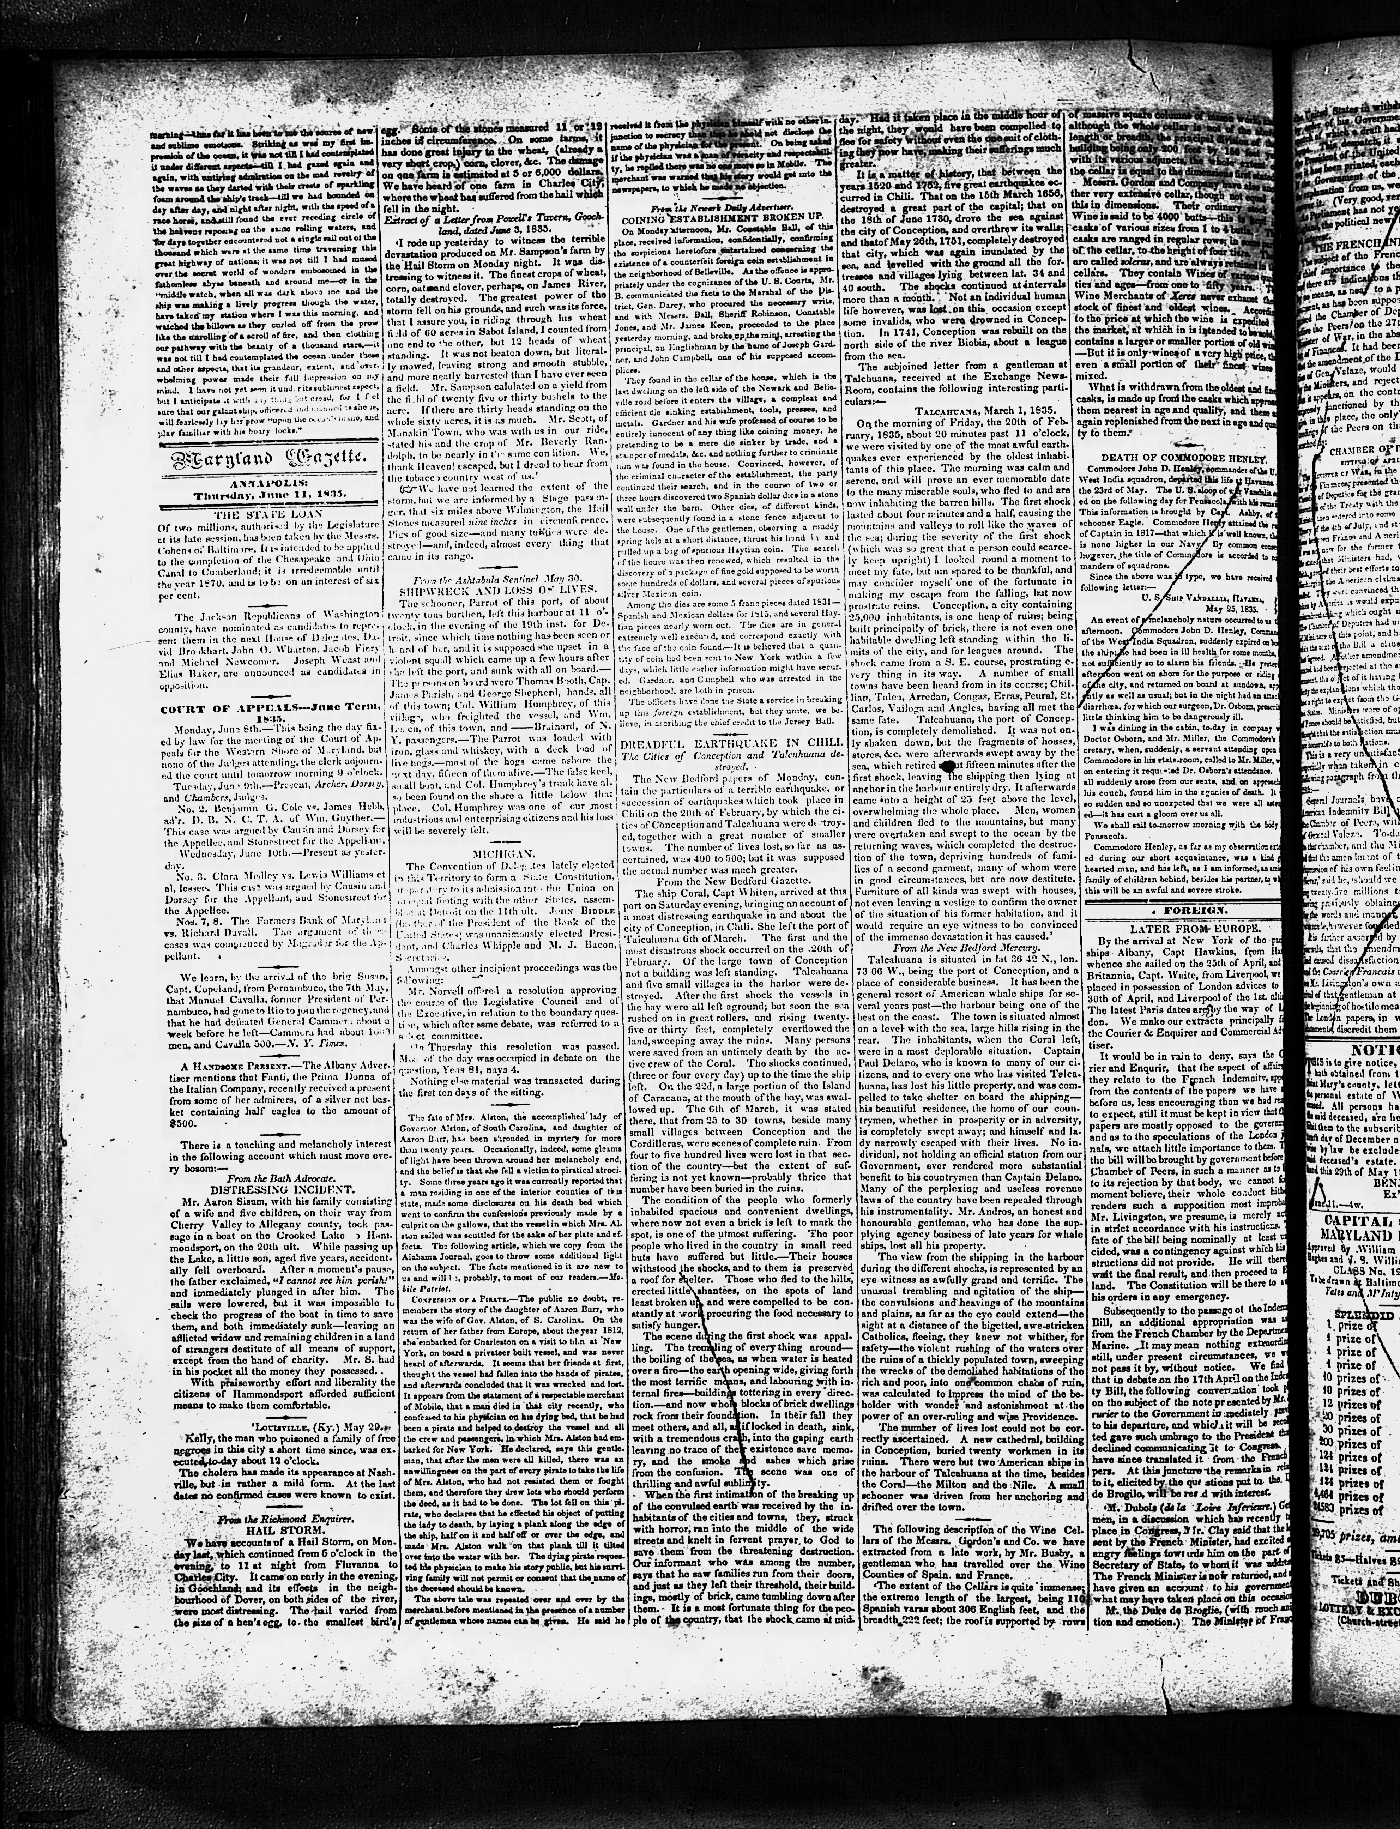 morning—thus far it has been to me the source of new
and sublime emotions. Striking as was my first im-
pression of the ocean, it was not till I had contemplated
it under different aspects—till I had gazed again and
again, with untiring admiration on the mad revelry of
the waves as they darted with their crests of sparkling
foam around the ship's track—till we had bounded on
day after day, and night after night, with the speed of a
race horse, and still found the ever receding circle of
the heavens reposing on the same rolling waters, and
for days together encountered not a single sail out of the
thousand which were at the same time traversing this
great highway of nations; it was not till I had mused
over the secret world of wonders embosomed in the
fathomless abyss beneath and around me—or in the
"middle watch, when all was dark above me and the
ship was making a lively progress though the water,
have taken my station where I was this morning, and
watched the billows as they curled off from the prow
like the unrolling of a scroll of fire, and then clothing
our pathway with the beauty of a thousand stars,—it
was not till I had contemplated the ocean under these
and other aspects, that its grandeur, extent, and over-
whelming power made their full impression on my
mind. I have not yet seen it under its sublimest aspect,
but I anticipate it with any thing but dread, for I feel
sure that our gallant ship, officered and manned as she is,
will fearlessly lay her prow "upon the ocean's mane, and
play familiar with his hoary locks."
Maryland Gazette.
ANNAPOLIS:
Thursday, June 11, 1835.
THE STATE LOAN
Of two millions, authorised by the Legislature
at its late session, has been taken by the Messrs.
Cohens of Baltimore. It is intended to be applied
to the completion of the Chesapeake and Ohio
Canal to Cumberland; it is redeemable until
the year 1870, and is to be on an interest of six
per cent.
The Jackson Republicans of Washington
county, have nominated as candidates to repre-
sent them in the next House of Delegates, Da-
vid Brookhart, John O. Wharton, Jacob Fiery
and Michael Newcomer. Joseph Weast and
Elias Baker, are announced as candidates in
opposition.
COURT OF APPEALS—June Term,
1835.
Monday, June 8th.—This being the day fix-
ed by law for the meeting of the Court of Ap-
peals for the Western Shore of Maryland, but
none of the Judges attending, the clerk adjourn-
ed the court until tomorrow morning 9 o'clock.
Tuesday, June 9th.—Present, Archer, Dorsey,
and Chambers, Judges.
No. 2. Benjamin G. Cole vs. James Hebb,
ad'r. D. B. N. C. T. A. of Wm. Guyther.—
This case was argued by Causin and Dorsey for
the Appellee, and Stonestreet for the Appellant.
Wednesday, June 10th.—Present as yester-
day.
No. 3. Clara Medley vs. Lewis Williams et
al, lessee. This case was argued by Causin and
Dorsey for the Appellant, and Stonestreet for
the Appellee.
Nos. 7, 8. The Farmers Bank of Maryland
vs. Richard Duvall. The argument of these
cases was commenced by Magruder for the Ap-
pellant.
We learn, by the arrival of the brig Susan,
Capt. Copeland, from Pernambuco, the 7th May,
that Manuel Cavalla, former President of Per-
nambuco, had gone to Rio to join the regency, and
that he had defeated General Cammara about a
week before he left—Cammara had about 1000
men, and Cavalla 500.—N. Y. Times.
A HANDSOME PRESENT.—The Albany Adver-
tiser mentions that Fanti, the Prima Donna of
the Italian Company, recently received a present
from some of her admirers, of a silver net bas-
ket containing half eagles to the amount of
$500.
There is a touching and melancholy interest
in the following account which must move eve-
ry bosom:—
From the Bath Advocate.
DISTRESSING INCIDENT.
Mr. Aaron Sisum, with his family consisting
of a wife and five children, on their way from
Cherry Valley to Allegany county, took pas-
sage in a boat on the Crooked Lake to Ham-
mondsport, on the 20th ult. While passing up
the Lake, a little son, aged five years, accident-
ally fell overboard. After a moment's pause,
the father exclaimed, "I cannot see him perish!"
and immediately plunged in after him. The
sails were lowered, but it was impossible to
check the progress of the boat in time to save
them, and both immediately sunk—leaving an
afflicted widow and remaining children in a land
of strangers destitute of all means of support,
except from the hand of charity. Mr. S. had
in his pocket all the money they possessed.
With praiseworthy effort and liberality the
citizens of Hammondsport afforded sufficient
means to make them comfortable.
LOUISVILLE, (Ky.) May 29.
Kelly, the man who poisoned a family of free
negroes in this city a short time since, was ex-
ecuted to-day about 12 o'clock.
The cholera has made its appearance at Nash-
ville, but in rather a mild form. At the last
dates no confirmed cases were known to exist.
From the Richmond Enquirer.
HAIL STORM.
We have accounts of a Hail Storm, on Mon-
day last, which continued from 6 o'clock in the
evening, to 11 at night from Fluvanna to
Charles City. It came on early in the evening,
in Goochland; and its effects in the neigh-
bourhood of Dover, on both sides of the river,
were most distressing. The hail varied from
the size of a hen's egg, to the smallest bird's
egg. Some of the stones measured 11 or 12
inches in circumference. On some farms, it
has done great injury to the wheat, (already a
very short crop,) corn, clover, &c. The damage
on one farm is estimated at 5 or 6,000 dollars.
We have heard of one farm in Charles City,
where the wheat has suffered from the hail which
fell in the night.
Extract of a Letter from Powell's Tavern, Gooch-
land, dated June 3, 1835.
'I rode up yesterday to witness the terrible
devastation produced on Mr. Sampson's farm by
the Hail Storm on Monday night. It was dis-
tressing to witness it. The finest crops of wheat,
corn, oats and clover, perhaps, on James River,
totally destroyed. The greatest power of the
storm fell on his grounds, and such was its force,
that I assure you, in riding through his wheat
field of 60 acres in Sabot Island, I counted from
one end to the other, but 12 heads of wheat
standing. It was not beaten down, but literal-
ly mowed, leaving strong and smooth stubble,
and more neatly harvested than I have ever seen
a field. Mr. Sampson calulated on a yield from
the field of twenty five or thirty bushels to the
acre. If there are thirty heads standing on the
whole sixty acres, it is as much. Mr. Scott, of
Manakin Town, who was with us in our ride,
stated his and the crop of Mr. Beverly Ran-
dolph, to be nearly in the same condition. We,
thank Heaven! escaped, but I dread to hear from
the tobacco country west of us.'
We have not learned the extent of the
storm, but we are informed by a Stage passen-
ger, that six miles above Wilmington, the Hail
Stones measured nine inches in circumference.
Pigs of good size—and many turkies were de-
stroyed—and, indeed, almost every thing that
came in its range.
From the Ashtabula Sentinel May 30.
SHIPWRECK AND LOSS OF LIVES.
The schooner, Parrot of this port, of about
twenty tons burthen, left this harbour at 11 o'-
clock, in the evening of the 19th inst. for De-
troit, since which time nothing has been seen or
heard of her, and it is supposed she upset in a
violent squall which came up a few hours after
she left the port, and sunk with all on board.—
The persons on board were Thomas Booth, Cap.
James Parish, and George Shepherd, hands, all
of this town; Col. William Humphrey, of this
village, who freighted the vessel, and Wm.
of this town, and —— Drainard, of N.
Y. passengers.—The Parrot was loaded with
iron, glass and whiskey, with a deck load of
live hogs,—most of the hogs came ashore the
next day, fifteen of them alive.—The false keel,
small boat, and Col. Humphrey's trunk have al-
so been found on the shore a little below this
place. Col. Humphrey was one of our most
industrious and enterprising citizens and his loss
will be severely felt.
MICHIGAN.
The Convention of Delegates lately elected
in this Territory to form a State Constitution,
preparatory to its admission into the Union on
an equal footing with the other States, assem-
bled at Detroit on the 11th ult. JOHN BIDDLE
(brother of the President of the Bank of the
United States) was unanimously elected Presi-
dent, and Charles Whipple and M. J. Bacon,
Secretaries.
Amongst other incipient proceedings was the
following:
Mr. Norvell offered a resolution approving
the course of the Legislative Council and of
the Executive, in relation to the boundary ques-
tion, which after some debate, was referred to a
select committee.
On Thursday this resolution was passed.
Most of the day was occupied in debate on the
question, Yeas 81, nays 4.
Nothing else material was transacted during
the first ten days of the sitting.
The fate of Mrs. Alston, the accomplished lady of
Governor Alston, of South Carolina, and daughter of
Aaron Burr, has been shrouded in mystery for more
than twenty years. Occasionally, indeed, some gleams
of light have been thrown around her melancholy end,
and the belief is that she fell a victim to piratical atroci-
ty. Some three years ago it was currently reported that
a man residing in one of the interior counties of this
state, made some disclosures on his death bed which
went to confirm the confessions previously made by a
culprit on the gallows, that the vessel in which Mrs. Al-
ston sailed was scuttled for the sake of her plate and ef-
fects. The following article, which we copy from the
Alabama Journal, goes to throw some additional light
on the subject. The facts mentioned in it are new to
us and will be, probably, to most of our readers.—Mo-
bile Patriot.
CONFESSION OF A PIRATE.—The public no doubt, re-
members the story of the daughter of Aaron Burr, who
was the wife of Gov. Alston, of S. Carolina. On the
return of her father from Europe, about the year 1812,
she embarked for Charleston on a visit to him at New
York, on board a privateer built vessel, and was never
heard of afterwards. It seems that her friends at first,
thought the vessel had fallen into the hands of pirates,
and afterwards concluded that it was wrecked and lost.
It appears from the statement of a respectable merchant
of Mobile, that a man died in that city recently, who
confessed to his physician on his dying bed, that he had
been a pirate and helped to destroy the vessel and all
the crew and passengers, in which Mrs. Alston had em-
barked for New York. He declared, says this gentle-
man, that after the men were all killed, there was an
unwillingness on the part of every pirate to take the life
of Mrs. Alston, who had not resisted them or fought
them, and therefore they drew lots who should perform
the deed, as it had to be done. The lot fell on this pi-
rate, who declares that he effected his object of putting
the lady to death, by laying a plank along the edge of
the ship, half on it and half off or over the edge, and
made Mrs. Alston walk on that plank till it tilted
over into the water with her. The dying pirate request-
ed his physician to make his story public, but his surviv-
ing family will not permit or consent that the name of
the deceased should be known.
The above tale was repeated over and over by the
merchant before mentioned in the presence of a number
of gentlemen whose names can be given. He said he
received it from the physician himself with no other in-
junction to secrecy than that he should not disclose the
name of the physician for the present. On being asked
if the physician was a man of veracity and respectabili-
ty, he replied there was no one more so in Mobile. The
merchant was warned that his story would get into the
newspapers, to which he made no objection.
From the Newark Daily Advertiser.
COINING ESTABLISHMENT BROKEN UP.
On Monday afternoon, Mr. Constable Ball, of this
place, received information, confidentially, confirming
the suspicions heretofore entertained concerning the
existence of a counterfeit foreign coin establishment in
the neighborhood of Belleville. As the offence is appro-
priately under the cognizance of the U. S. Courts, Mr.
B. communicated the facts to the Marshal of the Dis-
trict, Gen. Darcy, who procured the necessary writs,
and with Messrs. Ball, Sheriff Robinson, Constable
Jones, and Mr. James Keen, proceeded to the place
yesterday morning, and broke up the mint, arresting the
principal, an Englishman by the name of Joseph Gard-
ner, and John Campbell, one of his supposed accom-
plices.
They found in the cellar of the house, which is the
last dwelling on the left side of the Newark and Belle-
ville road before it enters the village, a compleat and
efficient die sinking establishment, tools, presses, and
metals. Gardner and his wife professed of course to be
entirely innocent of any thing like coining money, he
pretending to be a mere die sinker by trade, and a
stamper of medals, &c. and nothing further to criminate
him was found in the house. Convinced, however, of
the criminal character of the establishment, the party
continued their search, and in the course of two or
three hours discovered two Spanish dollar dies in a stone
wall under the barn. Other dies, of different kinds,
were subsequently found in a stone fence adjacent to
the house. One of the gentlemen, observing a muddy
spring hole at a short distance, thrust his hand in and
pulled up a bag of spurious Haytian coin. The search
of the house was then renewed, which resulted in the
discovery of a package of fine gold supposed to be worth
some hundreds of dollars, and several pieces of spurious
silver Mexican coin.
Among the dies are some 5 franc pieces dated 1831—
Spanish and Mexican dollars for 1815, and several Hay-
tian pieces nearly worn out. The dies are in general
extremely well executed, and correspond exactly with
the face of the coin found.—It is believed that a quan-
tity of coin had been sent to New York within a few
days, which little earlier information might have secur-
ed. Gardner, and Campbell who was arrested in the
neighborhood, are both in prison.
The officers have done the state a service in breaking
up this foreign establishment, but they unite, we be-
lieve, in ascribing the chief credit to the Jersey Ball.
DREADFUL EARTHQUAKE IN CHILI.
The Cities of Conception and Talcahuana de-
stroyed.
The New Bedford papers of Monday, con-
tain the particulars of a terrible earthquake, or
succession of earthquakes which took place in
Chili on the 20th of February, by which the ci-
ties of Conception and Talcahuana were destroy-
ed, together with a great number of smaller
towns. The number of lives lost, so far as as-
certained, was 400 to 500; but it was supposed
the actual number was much greater.
From the New Bedford Gazette.
The ship Coral, Capt Whiten, arrived at this
port on Saturday evening, bringing an account of
a most distressing earthquake in and about the
city of Conception, in Chili. She left the port of
Talcahuana 6th of March. The first and the
most disastrous shock occurred on the 20th of
February. Of the large town of Conception
not a building was left standing. Talcahuana
and five small villages in the harbor were de-
stroyed. After the first shock the vessels in
the bay were all left aground; but soon the sea
rushed on in great rollers, and rising twenty-
five or thirty feet, completely overflowed the
land, sweeping away the ruins. Many persons
were saved from an untimely death by the ac-
tive crew of the Coral. The shocks continued,
(three or four every day) up to the time the ship
left. On the 22d, a large portion of the Island
of Caracana, at the mouth of the bay, was swal-
lowed up. The 6th of March, it was stated
there, that from 25 to 30 towns, beside many
small villages between Conception and the
Cordilleras, were scenes of complete ruin. From
four to five hundred lives were lost in that sec-
tion of the country—but the extent of suf-
fering is not yet known—probably thrice that
number have been buried in the ruins.
The condition of the people who formerly
inhabited spacious and convenient dwellings,
where now not even a brick is left to mark the
spot, is one of the utmost suffering. The poor
people who lived in the country in small reed
huts have suffered but little.—Their houses
withstood the shocks, and to them is preserved
a roof for shelter. Those who fled to the hills,
erected little shanties, on the spots of land
least broken up, and were compelled to be con-
stantly at work procuring the food necessary to
satisfy hunger.
The scene during the first shock was appal-
ling. The trembling of every thing around—
the boiling of the sea, as when water is heated
over a fire—the earth opening wide, giving forth
the most terrific moans, and labouring with in-
ternal fires—buildings tottering in every direc-
tion.—and now whole blocks of brick dwellings
rock from their foundation. In their fall they
meet others, and all, as if locked in death, sink,
with a tremendous crash, into the gaping earth
leaving no trace of their existence save memo-
ry, and the smoke and ashes which arise
from the confusion. The scene was one of
thrilling and awful sublimity.
When the first intimation of the breaking up
of the convulsed earth was received by the in-
habitants of the cities and towns, they, struck
with horror, ran into the middle of the wide
streets and knelt in fervent prayer to God to
save them from the threatening destruction.
Our informant who was among the number,
says that he saw families run from their doors,
and just as they left their threshold, their build-
ings, mostly of brick, came tumbling down after
them. It is a most fortunate thing for the peo-
ple of the country, that the shock came at mid-
day. Had it taken place in the middle hour of
the night, they would have been compelled to
flee for safety without even the pursuit of cloth-
ing they now have, making their sufferings much
greater.
It is a matter of history, that between the
years 1520 and 1752, five great earthquakes oc-
curred in Chili. That on the 15th March 1656,
destroyed a great part of the capital; that on
the 18th of June 1730, drove the sea against
the city of Conception, and overthrew its walls;
and that of May 26th, 1751, completely destroyed
that city, which was again inundated by the
sea, and levelled with the ground all the for-
tresses and villages lying between lat. 34 and
40 south. The shocks continued at intervals
more than a month. Not an individual human
life however, was lost on this occasion except
some invalids, who were drowned in Concep-
tion. In 1741, Conception was rebuilt on the
north side of the river Biobia, about a league
from the sea.
The subjoined letter from a gentleman at
Talcahuana, received at the Exchange News-
Room, contains the following interesting parti-
culars:—
TALCAHUANA, March 1, 1835.
On the morning of Friday, the 20th of Feb-
ruary, 1835, about 20 minutes past 11 o'clock,
we were visited by one of the most awful earth-
quakes ever experienced by the oldest inhabi-
tants of this place. The morning was calm and
serene, and will prove an ever memorable date
to the many miserable souls, who fled to and are
now inhabiting the barren hills. The first shock
lasted about four minutes and a half, causing the
mountains and valleys to roll like the waves of
the sea; during the severity of the first shock
(which was so great that a person could scarce-
ly keep upright) I looked round a moment to
meet my fate, but am spared to be thankful, and
may concider myself one of the fortunate in
making my escape from the falling, but now
prostrate ruins. Conception, a city containing
25,000 inhabitants, is one heap of ruins; being
built principally of brick, there is not even one
habitable dwelling left standing within the li-
mits of the city, and for leagues around. The
shock came from a S. E. course, prostrating e-
very thing in its way. A number of small
towns have been heard from in its course; Chil-
lian, Tulca, Arredan, Congas, Ferras, Peural, Ct.
Carlos, Vailoga and Angles, having all met the
same fate. Talcahuana, the port of Concep-
tion, is completely demolished. It was not on-
ly shaken down, but the fragments of houses,
stores, &c. were afterwards swept away by the
sea, which retired about fifteen minutes after the
first shock, leaving the shipping then lying at
anchor in the harbour entirely dry. It afterwards
came into a height of 25 feet above the level,
overwhelming the whole place. Men, women
and children fled to the mountains, but many
were overtaken and swept to the ocean by the
returning waves, which completed the destruc-
tion of the town, depriving hundreds of fami-
lies of a second garment, many of whom were
in good circumstances, but are now destitute.
Furniture of all kinds was swept with houses,
not even leaving a vestige to confirm the owner
of the situation of his former habitation, and it
would require an eye witness to be convinced
of the immense devastation it has caused.'
From the New Bedford Mercury.
Talcahuana is situated in lat 36 42 N., lon.
73 66 W., being the port of Conception, and a
place of considerable business. It has been the
general resort of American whale ships for se-
veral years past—the harbour being one of the
best on the coast. The town is situated almost
on a level with the sea, large hills rising in the
rear. The inhabitants, when the Coral left,
were in a most deplorable situation. Captain
Paul Delano, who is known to many of our ci-
tizens, and to every one who has visited Talca-
huana, has lost his little property, and was com-
pelled to take shelter on board the shipping—
his beautiful residence, the home of our coun-
trymen, whether in prosperity or in adversity,
is completely swept away; and himself and la-
dy narrowly escaped with their lives. No in-
dividual, not holding an official station from our
Government, ever rendered more substantial
benefit to his countrymen than Captain Delano.
Many of the perplexing and useless revenue
laws of the country have been repealed through
his instrumentality. Mr. Andros, an honest and
honourable gentleman, who has done the sup-
plying agency business of late years for whale
ships, lost all his property.
The view from the shipping in the harbour
during the different shocks, is represented by an
eye witness as awfully grand and terrific. The
unusual trembling and agitation of the ship—
the convulsions and heavings of the mountains
and plains, as far as the eye could extend—the
sight at a distance of the bigotted, awe-stricken
Catholics, fleeing, they knew not whither, for
safety—the violent rushing of the waters over
the ruins of a thickly populated town, sweeping
the wrecks of the demolished habitations of the
rich and poor, into one common chaos of ruin,
was calculated to impress the mind of the be-
holder with wonder and astonishment at the
power of an over-ruling and wise Providence.
The number of lives lost could not be cor-
rectly ascertained. A new cathedral, building
in Conception, buried twenty workmen in its
ruins. There were but two American ships in
the harbour of Talcahuana at the time, besides
the Coral—the Milton and the Nile. A small
schooner was driven from her anchoring and
drifted over the town.
The following description of the Wine Cel-
lars of the Messrs. Gordon's and Co. we have
extracted from a late work, by Mr. Busby, a
gentleman who travelled over the Wine
Counties of Spain. and France.
'The extent of the Cellars is quite immense;
the extreme length of the largest, being 110
Spanish varas about 306 English feet, and the
breadth 222 feet; the roof is supported by rows
of massive square columns of
although the whole cellar is not of the same
length or breadth, the
building being only 200 feet by 156
with its various adjuncts, the whole extent of
the cellar is equal to the dimensions first
Messrs. Gordon and Company have also ano-
ther very extensive cellar, though not equal to
this in dimensions. Their ordinary stock of
Wine is said to be 4000 butts—this is
casks of various sizes from 1 to 4 butts,
casks are ranged in regular rows, in
of the cellar, to the height of four tiers. These
are called soleras, and are always retained in the
cellars. They contain Wines of various quali-
ties and ages—from one to fifty years. The
Wine Merchants of Xeres never exhaust their
stock of finest and oldest wines. According
to the price at which the wine is expedited to
the market, at which in is intended to be sold,
contains a larger or smaller portion of old wine.
—But it is only wines of a very high price, that
even a small portion of their finest wines is
mixed.
What is withdrawn from the oldest and finest
casks, is made up from the casks which approach
them nearest in age and quality, and these are
again replenished from the next in age and quali-
ty to them."
DEATH OF COMMODORE HENLEY.
Commodore John D. Henley, commander of the U. S.
West India squadron, departed this life at Havanna on
the 23rd of May. The U. S. sloop of war Vandalia sail-
ed on the following day for Pensacola, with his remains.
This information is brought by Capt. Ashby, of the
schooner Eagle. Commodore Henley attained the rank
of Captain in 1817—that which is well known, there
is none higher in our Navy. By common consent
however, the title of Commodore is accorded to com-
manders of squadrons.
Since the above was in type, we have received the
following letter:—
U. S. SHIP VANDALIA, HAVANA,
May 25, 1835.
An event of a melancholy nature occurred to us this
afternoon. Commodore John D. Henley, Commander
of the West India Squadron, suddenly expired on board
the ship; he had been in ill health for some months, but
not sufficiently so to alarm his friends. He yesterday
afternoon went on shore for the purpose or riding out
of the city, and returned on board at sundown, appa-
rently as well as usual; but in the night had an attack of
diarrhœa, for which our surgeon, Dr. Osborn, prescribed,
little thinking him to be dangerously ill.
I was dining in the cabin, today in company with
Doctor Osborn, and Mr. Miller, the Commodore's Se-
cretary, when, suddenly, a servant attending upon the
Commodore in his state-room, called to Mr. Miller, who
on entering it requested Dr. Osborn's attendance. We
all suddenly arose from our seats, and on approaching
his couch, found him in the agonies of death. It was
so sudden and so unexpected that we were all astound-
ed—it has cast a gloom over us all.
We shall sail to-morrow morning with the body for
Pensacola.
Commodore Henley, as far as my observation extend-
ed during our short acquaintance, was a kind and
hearted man, and has left, as I am informed, an amiable
family of children behind, besides his partner, to whom
this will be an awful and severe stroke.
FOREIGN.
LATER FROM EUROPE.
By the arrival at New York of the packet
ships Albany, Capt Hawkins, from Havre,
whence she sailed on the 25th of April, and
Britannia, Capt. Waite, from Liverpool, we are
placed in possession of London advices to the
30th of April, and Liverpool of the 1st. ult.
The latest Paris dates are by the way of Lon-
don. We make our extracts principally from
the Courier & Enquirer and Commercial Adver-
tiser.
It would be in vain to deny, says the Cou-
rier and Enquirir, that the aspect of affairs, as
they relate to the French Indemnity, appears
from the contents of the papers we have now
before us, less encouraging then we had reason
to expect, still it must be kept in view that the
papers are mostly opposed to the government,
and as to the speculations of the London jour-
nals, we attach little importance to them. That
the bill will be brought by government before the
Chamber of Peers, in such a manner as to lead
to its rejection by that body, we cannot for a
moment believe, their whole conduct hitherto
renders such a supposition most improbable.
Mr. Livingston, we presume, is merely acting
in strict accordance with his instructions. The
fate of the bill being nominally at least unde-
cided, was a contingency against which his in-
structions did not provide. He will there
wait the final result, and then proceed to Eng-
land. The Constitution will be there to await
his orders in any emergency.
Subsequently to the passage of the Indemnity
Bill, an additional appropriation was asked
from the French Chamber by the Department of
Marine. It may mean nothing extraordinary,
still, under present circumstances, we would
not pass it by, without notice. We find also
that in debate on the 17th April on the Indemni-
ty Bill, the following conversation took place
on the subject of the note presented by Mr. Ser-
rurier to the Government immediately previous
to his departure, and which it will be recollec-
ted gave such umbrage to the President that he
declined communicating it to Congress. We
have since translated it from the French pa-
pers. At this juncture the remarks in relation
to it, elicited by the questions put to the Duke
de Broglio, will be read with interest.
M. Dubois (de la Loire Inferieure.) Gentle-
men, in a discussion which has recently taken
place in Congress, Mr. Clay said that the note
sent by the French Minister, had excited some
angry feelings towards him on the part of the
Secretary of State, to whom it was addressed.
The French Minister is now returned, and must
have given an account to his government of
what may have taken place on this occasion.
M. the Duke de Broglie, (with much anima-
tion and emotion.) The Minister of France
THE FRENCH IN
CHAMBER OF P
NOTIC
CAPITAL
MARYLAND
SPLENDID
1 prize of
1 prize of
1 prize of
1 prize of
10 prizes of
10 prizes of
12 prizes of
20 prizes of
30 prizes of
200 prizes of
124 prizes of
Tickets $5—Halves $2